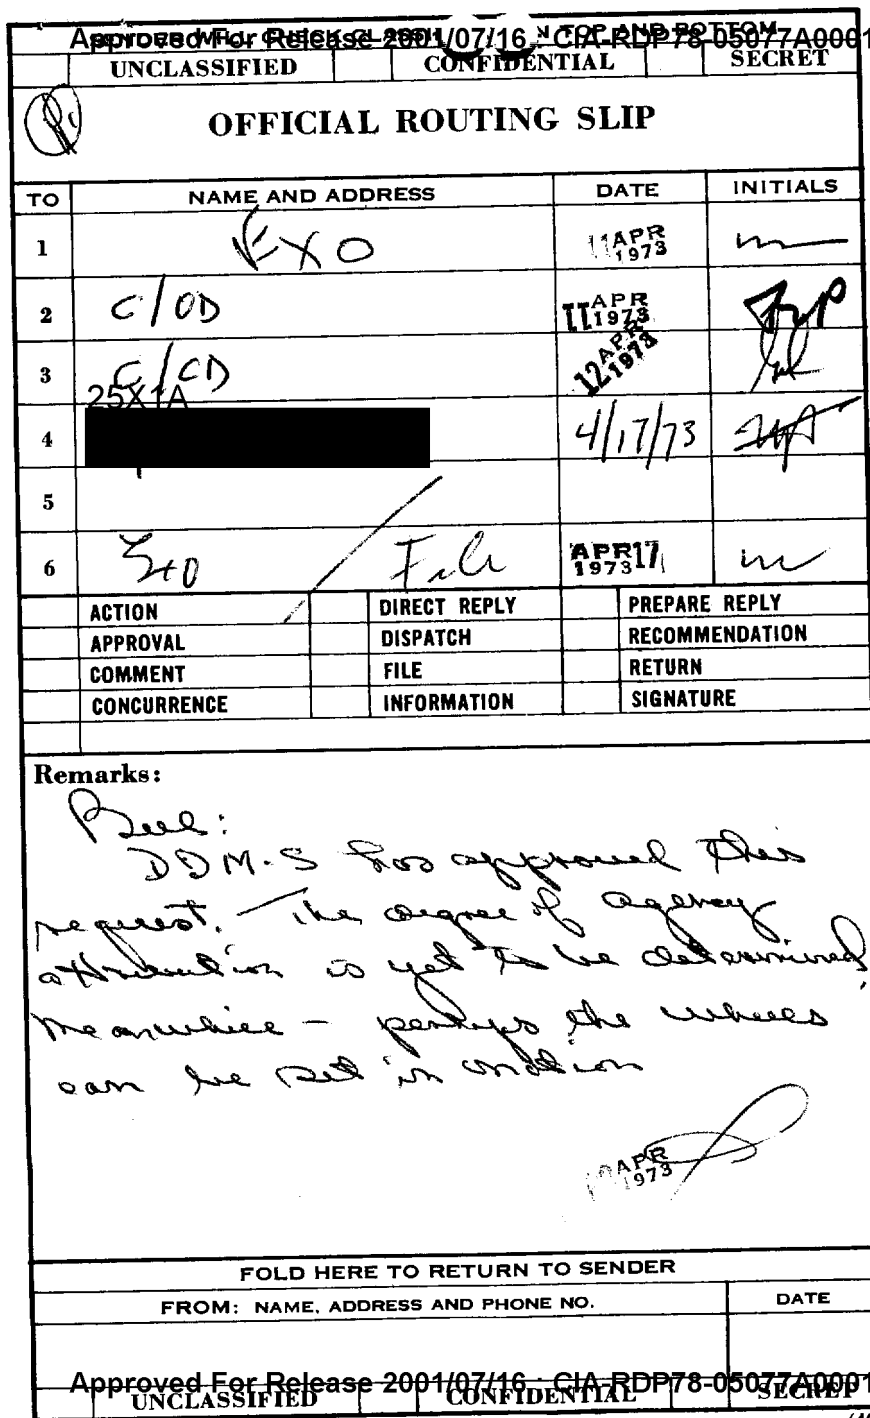 SENDER WILL CHECK CLASSIFICATION TOP AND BOTTOM
Approved For Release 2001/07/16 : CIA-RDP78-05077A0001
UNCLASSIFIED CONFIDENTIAL SECRET
OFFICIAL ROUTING SLIP
TO NAME AND ADDRESS DATE INITIALS
1 EXO 11 APR 1973
2 C/OD 11 APR 1973
3 C/CD 12 APR 1973
25X1A
4 4/17/73
5
6 EXO File APR 17 1973
ACTION DIRECT REPLY PREPARE REPLY
APPROVAL DISPATCH RECOMMENDATION
COMMENT FILE RETURN
CONCURRENCE INFORMATION SIGNATURE
Remarks:
Bill:
DDM-S has approved this
request. The degree of agency
attribution is yet to be determined.
Meanwhile - perhaps the wheels
can be set in motion
APR 1973
FOLD HERE TO RETURN TO SENDER
FROM: NAME, ADDRESS AND PHONE NO. DATE
Approved For Release 2001/07/16 : CIA-RDP78-05077A0001
UNCLASSIFIED CONFIDENTIAL SECRET